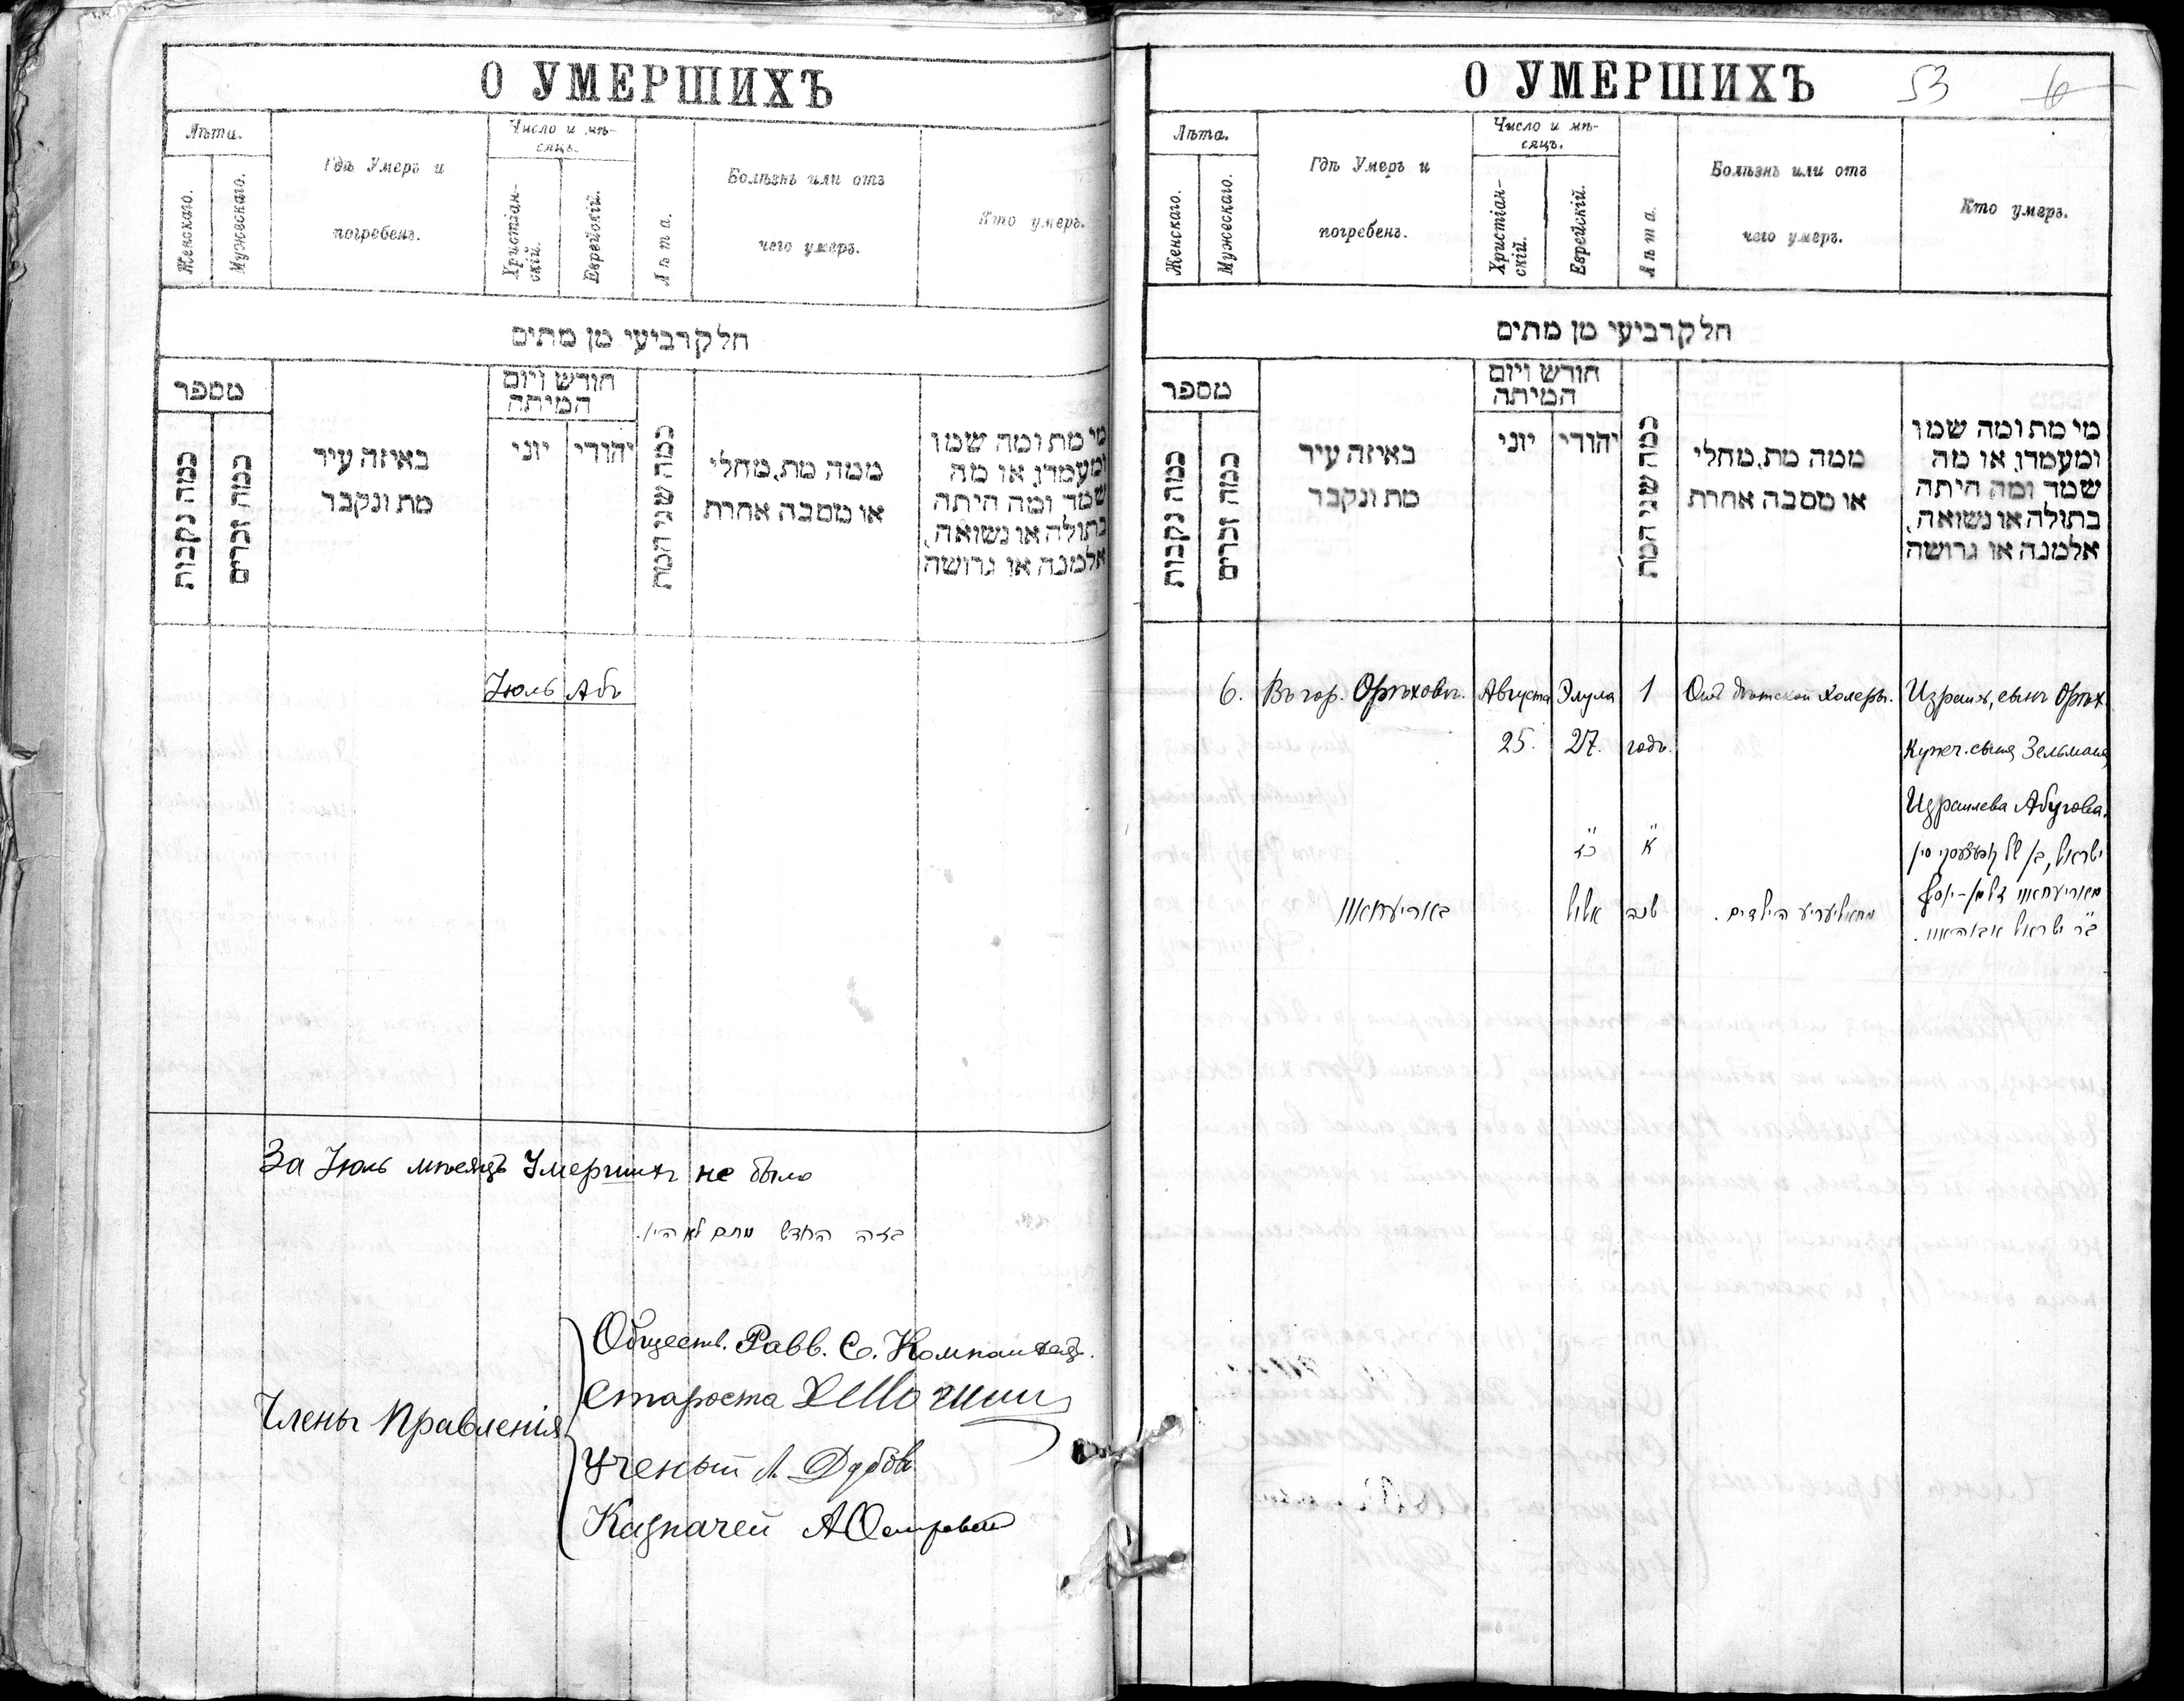 О УМЕРШИХЪ
Лѣта.
Женскаго.
Мужескаго.
Гдѣ Умеръ и
погребенъ.
Число и мѣ-
сяцъ.
Христіан-
скій.
Еврейскій.
Лѣта.
Болѣзнь или отъ
чего умеръ.
Кто умеръ.
חלק רביעי מן מתים
מספר
כמה נקבות
כמה זכרים
באיזה עיר
מת ונקבר
חודש ויום
המיתה
יוני
יהודי
כמה שני המת
ממה מת, מחלי
או מסבה אחרת
מי מת ומה שמו
ומעמדו, או מה
שמד ומה היתה
בתולה או נשואה,
אלמנה או גרושה
Іюль Абъ
За Іюль мѣсяцъ Умершихъ не было
בזה החדש מתים לא היו.
Члены Правленія
Обществ. Равв. С.
Староста
Ученый Л. Дубовъ
Казначей А Островскій
О УМЕРШИХЪ
53 6
Лѣта.
Женскаго.
Мужескаго.
Гдѣ Умеръ и
погребенъ.
Число и мѣ-
сяцъ.
Христіан-
скій.
Еврейскій.
Лѣта.
Болѣзнь или отъ
чего умеръ.
Кто умеръ.
חלק רביעי מן מתים
מספר
כמה נקבות
כמה זכרים
באיזה עיר
מת ונקבר
חודש ויום
המיתה
יוני
יהודי
כמה שני המת
ממה מת, מחלי
או מסבה אחרת
מי מת ומה שמו
ומעמדו, או מה
שמד ומה היתה
בתולה או נשואה,
אלמנה או גרושה
6. Въ гор. Орѣховѣ. Августа Элула 1 Отъ дѣтской холеры. Израиль, сынъ Орѣх.
25. 27. годъ. Купеч. сына Зельмана
Израилева Абугова.
כז א ישראל, בן של
באריעחאוו אלול שנה מחאליעריע הילדים. מאריעחאוו זלמן-יוסף
בר ישראל אבוהאוו.